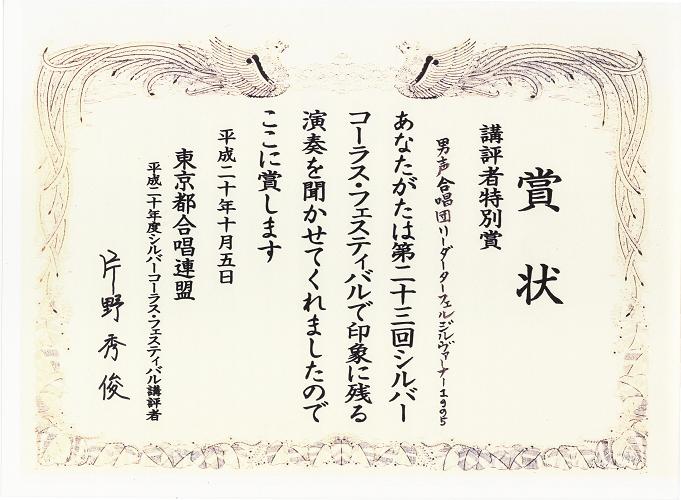 賞状
講評者特別賞
男声合唱団リーダーターフェルジルヴァーナー1995
あなたがたは第二十三回シルバー
コーラス・フェスティバルで印象に残る
演奏を聞かせてくれましたので
ここに賞します
平成二十年十月五日
東京都合唱連盟
平成二十年度シルバーコーラス・フェスティバル講評者
片野秀俊